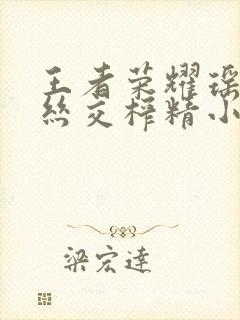 王者荣耀瑶
丝交榨精小
梁宏達